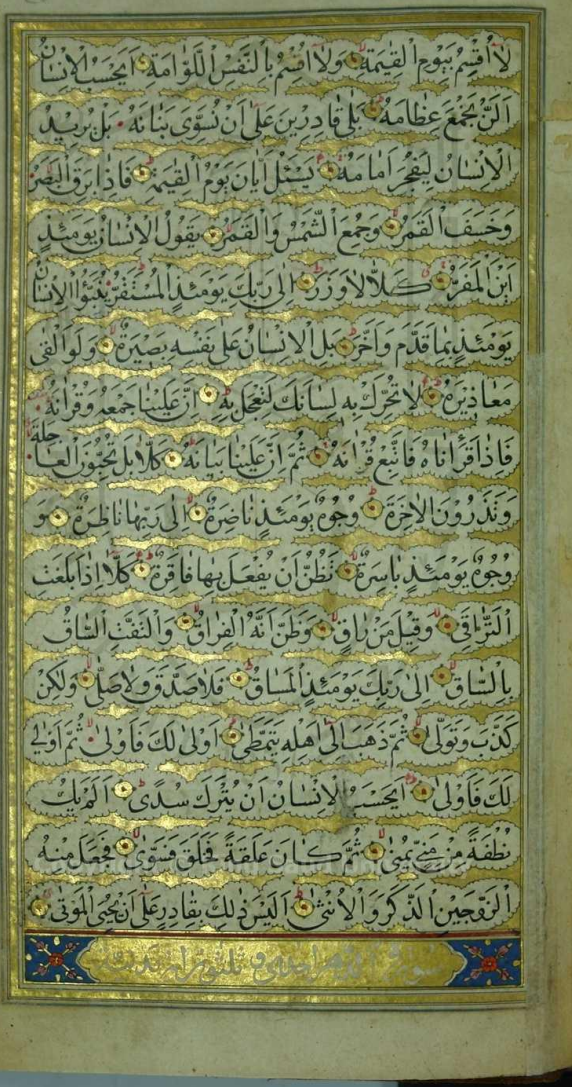 لَا اُقْسِمُ بِيَوْمِ الْقِيٰمَةِ وَلَا اُقْسِمُ بِالنَّفْسِ اللَّوَّامَةِ اَيَحْسَبُ الْاِنْسَانُ
اَلَّنْ نَجْمَعَ عِظَامَهُ بَلٰى قَادِرِينَ عَلٰى اَنْ نُسَوِّىَ بَنَانَهُ بَلْ يُرِيدُ
الْاِنْسَانُ لِيَفْجُرَ اَمَامَهُ يَسْئَلُ اَيَّانَ يَوْمُ الْقِيٰمَةِ فَاِذَا بَرِقَ الْبَصَرُ
وَخَسَفَ الْقَمَرُ وَجُمِعَ الشَّمْسُ وَالْقَمَرُ يَقُولُ الْاِنْسَانُ يَوْمَئِذٍ
اَيْنَ الْمَفَرُّ كَلَّا لَا وَزَرَ اِلٰى رَبِّكَ يَوْمَئِذٍ الْمُسْتَقَرُّ يُنَبَّؤُا الْاِنْسَانُ
يَوْمَئِذٍ بِمَا قَدَّمَ وَاَخَّرَ بَلِ الْاِنْسَانُ عَلٰى نَفْسِهِ بَصِيرَةٌ وَلَوْ اَلْقٰى
مَعَاذِيرَهُ لَا تُحَرِّكْ بِهِ لِسَانَكَ لِتَعْجَلَ بِهِ اِنَّ عَلَيْنَا جَمْعَهُ وَقُرْاٰنَهُ
فَاِذَا قَرَأْنَاهُ فَاتَّبِعْ قُرْاٰنَهُ ثُمَّ اِنَّ عَلَيْنَا بَيَانَهُ كَلَّا بَلْ تُحِبُّونَ الْعَاجِلَةَ
وَتَذَرُونَ الْاٰخِرَةَ وُجُوهٌ يَوْمَئِذٍ نَاضِرَةٌ اِلٰى رَبِّهَا نَاظِرَةٌ وَ
وُجُوهٌ يَوْمَئِذٍ بَاسِرَةٌ تَظُنُّ اَنْ يُفْعَلَ بِهَا فَاقِرَةٌ كَلَّا اِذَا بَلَغَتِ
التَّرَاقِىَ وَقِيلَ مَنْ رَاقٍ وَظَنَّ اَنَّهُ الْفِرَاقُ وَالْتَفَّتِ السَّاقُ
بِالسَّاقِ اِلٰى رَبِّكَ يَوْمَئِذٍ الْمَسَاقُ فَلَا صَدَّقَ وَلَا صَلّٰى وَلٰكِنْ
كَذَّبَ وَتَوَلّٰى ثُمَّ ذَهَبَ اِلٰى اَهْلِهِ يَتَمَطّٰى اَوْلٰى لَكَ فَاَوْلٰى ثُمَّ اَوْلٰى
لَكَ فَاَوْلٰى اَيَحْسَبُ الْاِنْسَانُ اَنْ يُتْرَكَ سُدًى اَلَمْ يَكُ
نُطْفَةً مِنْ مَنِىٍّ يُمْنٰى ثُمَّ كَانَ عَلَقَةً فَخَلَقَ فَسَوّٰى فَجَعَلَ مِنْهُ
الزَّوْجَيْنِ الذَّكَرَ وَالْاُنْثٰى اَلَيْسَ ذٰلِكَ بِقَادِرٍ عَلٰى اَنْ يُحْيِىَ الْمَوْتٰى